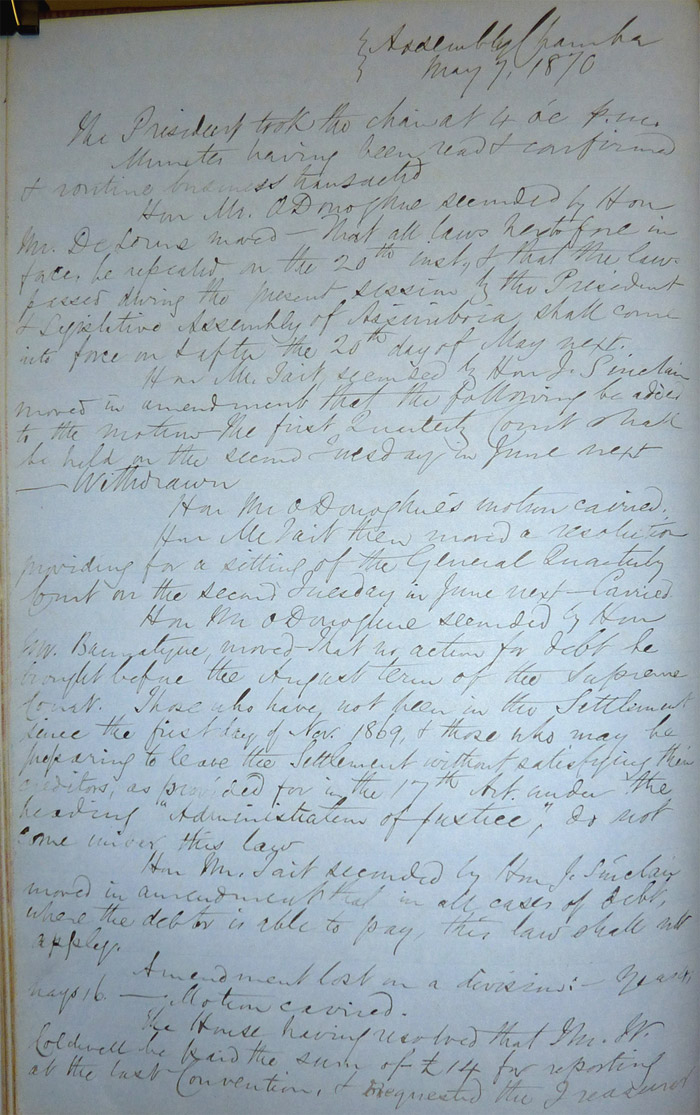 Assembly Chamber
May 7, 1870
The President took the chair at 4 o'c p.m.
Minutes having been read & confirmed
& routine business transacted
Hon Mr. O'Donoghue seconded by Hon
Mr. DeLorme moved — That all laws heretofore in
force, be repealed, on the 20th inst, & that the laws
passed during the present session by the President
& Legislative Assembly of Assiniboia, shall come
into force on & after the 20th day of May next.
Hon Mr. Tait, seconded by Hon J. Sinclair
moved in amendment that the following be added
to the motion The first Quarterly Court shall
be held on the second Tuesday in June next
— Withdrawn
Hon Mr O'Donoghue's motion carried.
Hon Mr Tait then moved a resolution
providing for a sitting of the General Quarterly
Court on the second Tuesday in June next — Carried
Hon Mr O'Donoghue seconded by Hon
Mr. Bannatyne, moved That no action for debt be
brought before the August term of the Supreme
Court. Those who have not been in the Settlement
since the first day of Nov. 1869, & those who may be
preparing to leave the Settlement without satisfying their
creditors, as provided for in the 17th Art. under the
heading "Administration of Justice", do not
come under this law
Hon Mr. Tait seconded by Hon J. Sinclair
moved in amendment that in all cases of debt,
where the debtor is able to pay, this law shall not
apply.
Amendment lost on a division: — Yeas 4,
nays 16. — Motion carried.
The House having resolved that Mr. W.
Coldwell be paid the sum of £14 for reporting
at the last Convention, & requested the Treasurer